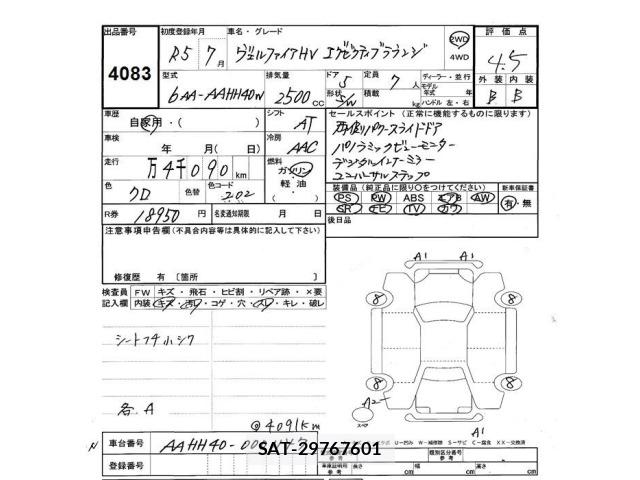 出品番号 初度登録年月 車名・グレード 評価点
4083 R5年7月 ヴェルファイアHV エグゼクティブラウンジ 2WD 4WD 4.5
型式 排気量 ドア 5 定員 7人 ディーラー・並行 外装 内装
6AA-AAHH40W 2500cc 形状 S/W 積載 kg モデル年式 年式 ハンドル 左・右 B B
車歴 自家用・( ) シフト AT セールスポイント (正常に機能するものに限ります)
両側パワースライドドア
車検 年 月(日) 冷房 AAC パノラミックビューモニター
デジタルインナーミラー
走行 万4千090km 燃料 ガソリン 軽油 ( ) ユニバーサルステップ
色 クロ 色替 色コード 202 装備品 (純正品に限り○をつけてください) 新車保証書
PS PW ABS エアB AW 有・無
R券 18950円 名変通知期限 月 日 SR TV
後日品
注意事項申告欄(不具合内容等は具体的に記入して下さい)
修復歴 有 〔箇所
検査員記入欄 FW キズ・飛石・ヒビ割・リペア跡・×要
内装 キズ・汚レ・コゲ・穴・スレ・キレ・破レ
A1 A1
8 8
シートフチ小シワ
8 8
A2
スペア
各A
@4091km
A1
U-凹み W-補修跡 S-サビ C-腐食 XX-交換済
N 車台番号 AAHH40-
SAT-29767601
登録番号 参考 類別区分番号 参考
車庫証明用 参考 長さ cm 幅 cm 高さ cm